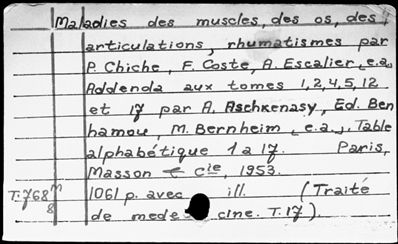 Maladies des muscles, des os, des
articulations, rhumatismes par
P. Chiche, F. Coste, A. Escalier, e.a.
Addenda aux tomes 1,2,4,5,12
et 17 par A. Aschkenasy, Ed. Ben
hamou, M. Bernheim, e.a., Table
alphabétique 1 a 17. Paris,
Masson & Cie, 1953.
T.768 m/8 1061 p. avec ill. (Traité
de mede cine. T.17).